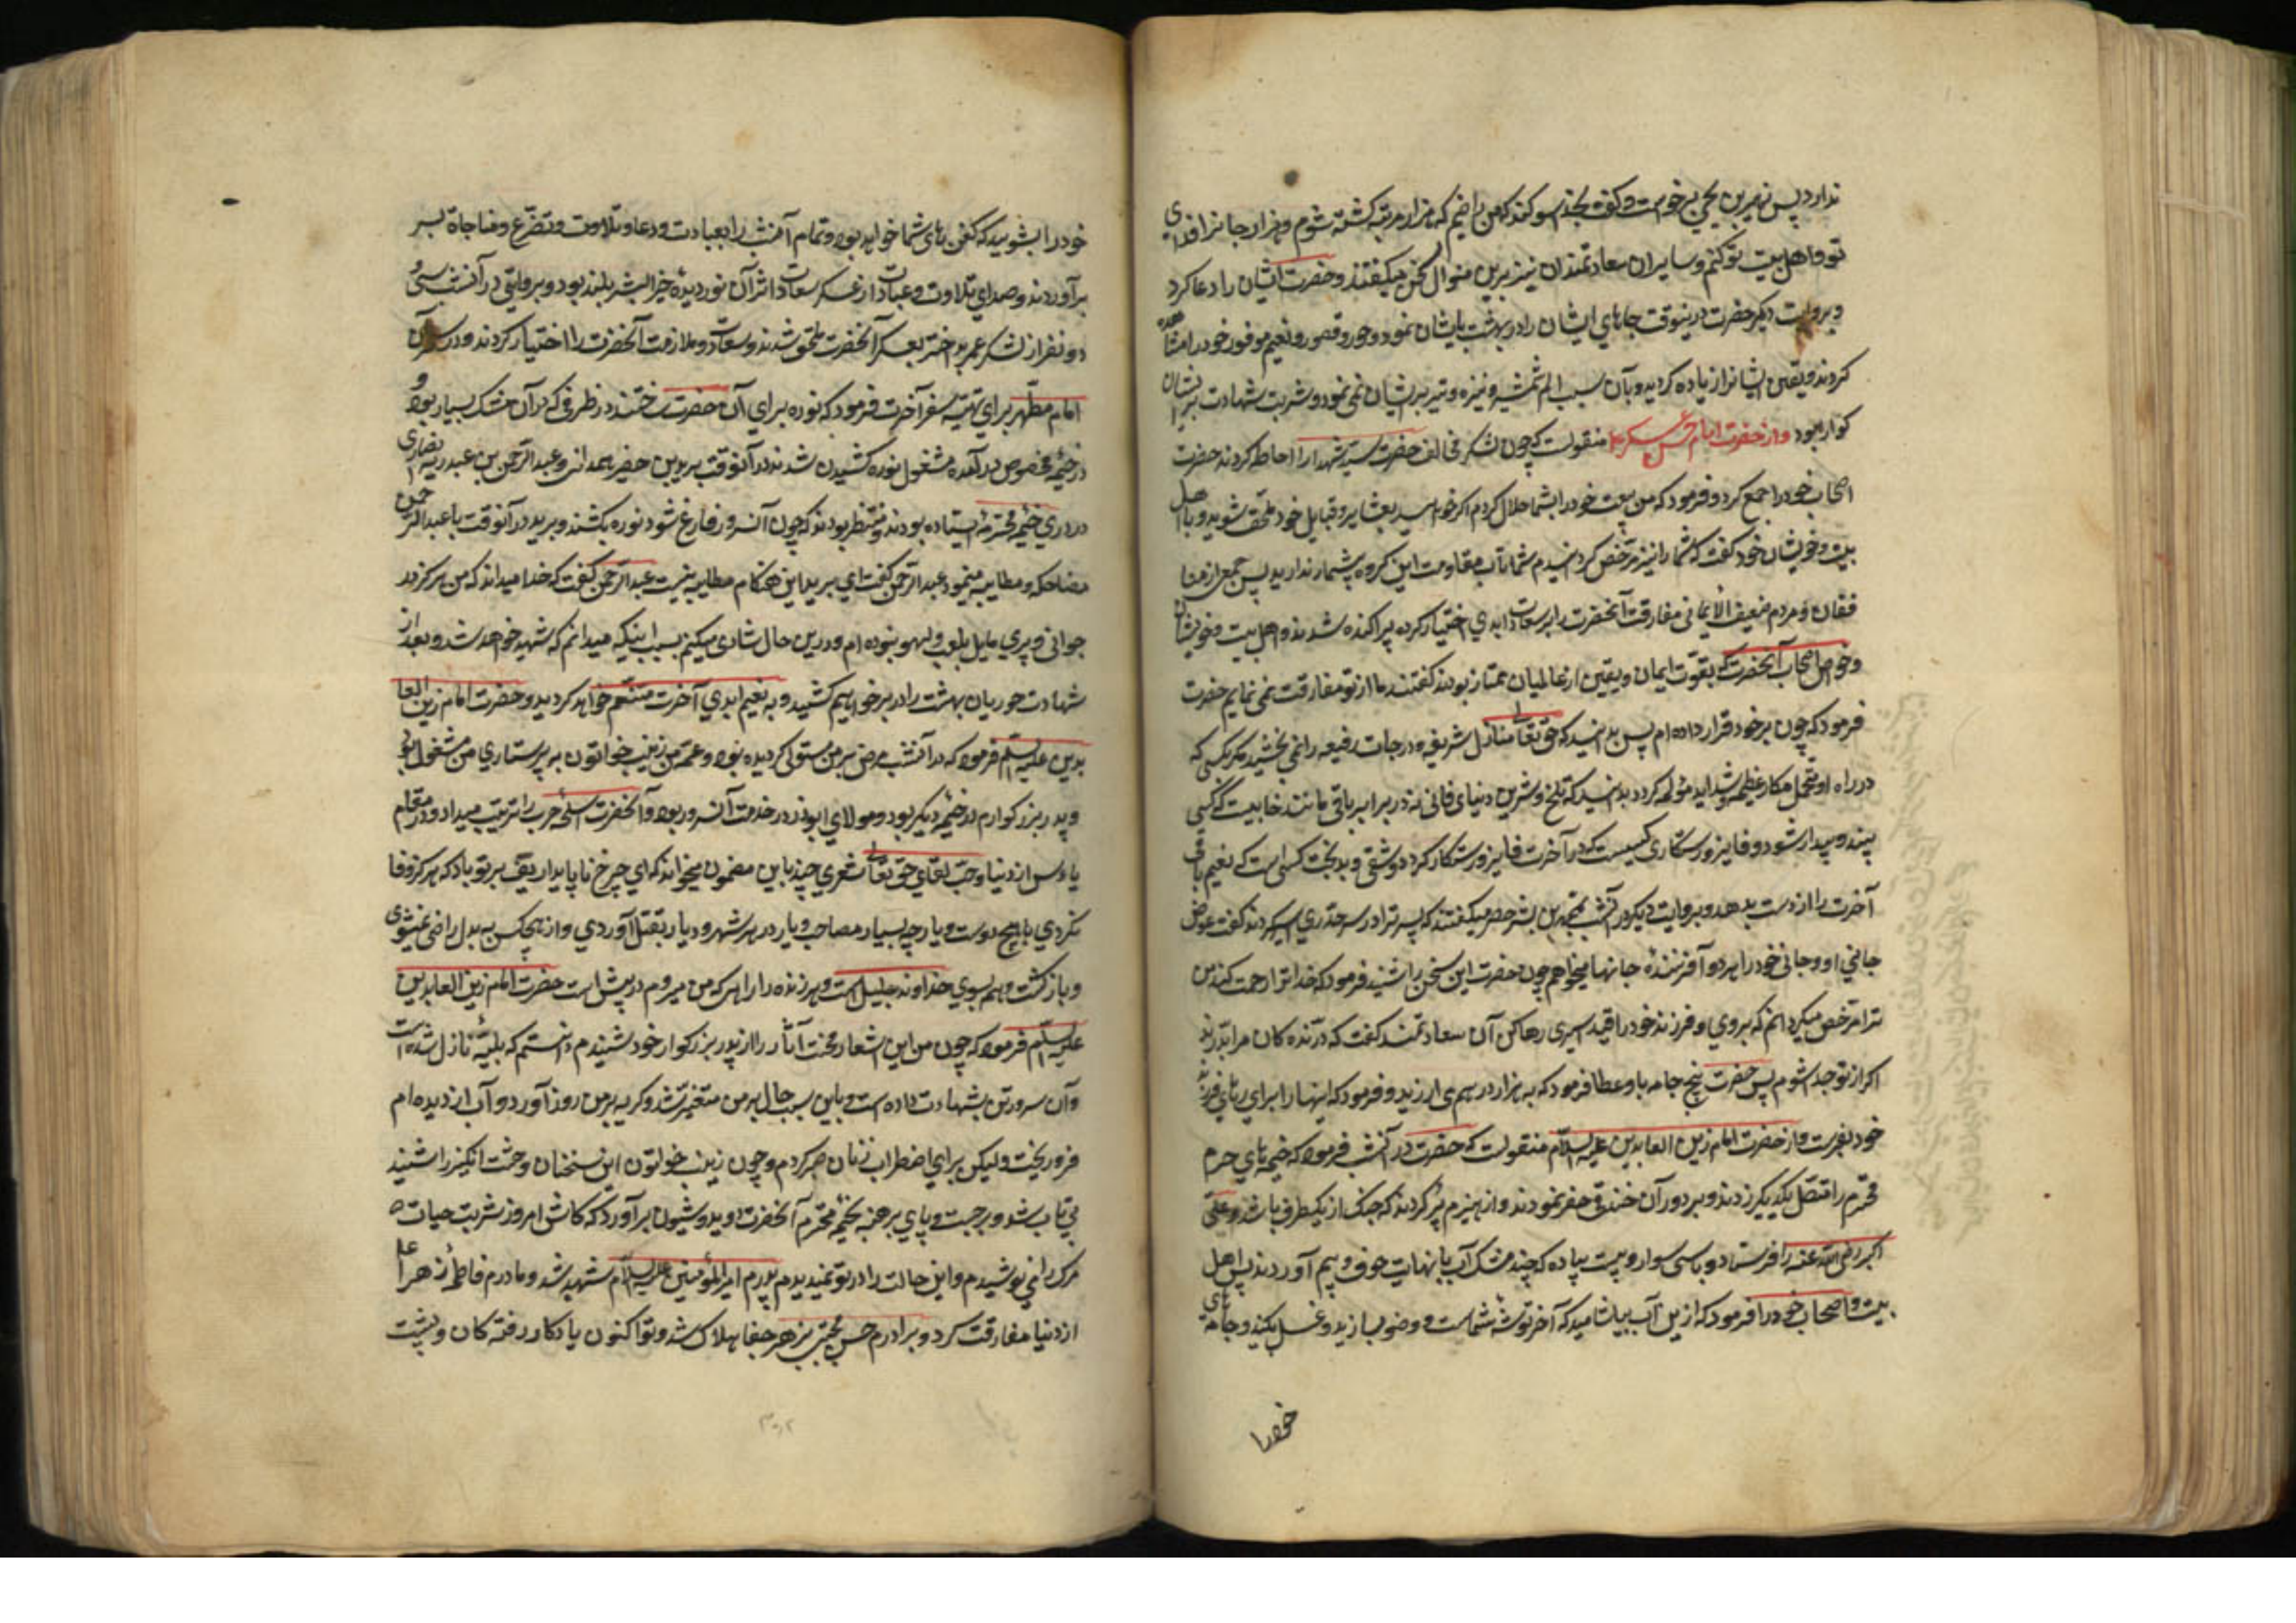 ندارد پس زهیر بن یحیی برخواست و گفت بخدا سوکند که من راضیم که هزار مرتبه کشته شوم و هزار جانرا فدای
تو و اهل بیت تو کنم و سایران سعادتمندان نیز برین منوال سخن میکفتند و حضرت ایشان را دعا کرد
و بروایت دیکر حضرت درینوقت جاهای ایشان را در بهشت بایشان نمود و حور و قصور و نعیم موفور خود را مشاهده
کردند و یقین ایشانرا زیاده کردید و بآن سبب الم شمشیر و نیزه و تیر برایشان نمی نمود و شربت شهادت برایشان
کوارا بود و از حضرت امام حسن عسکری منقولست که چون لشکر مخالف حضرت سید شهدا را احاطه کردند حضرت
اصحاب خود را جمع کرد و فرمود که من بیعت خود را بشما حلال کردم اکر خواسید بعشایر و قبایل خود ملحق شوید و با اهل
بیت و خویشان خود کفت که شما را نیز مرخص کردانیدم شما تاب مقاومت این کروه پشمار ندارید پس جمعی از منا
فقان و مردم ضعیف الایمانی مفارقت آنحضرت را بر سعادت ابدی اختیار کرده پراکنده شدند و اهل بیت و خویشان
و خواص اصحاب آنحضرت که بقوت ایمان و یقین از عالمیان ممتاز بودند کفتند ما از تو مفارقت نمی نمایم حضرت
فرمود که چون بر خود قرار داده ام پس بدانید که حق تعالی منازل شریفه و درجات رفیعه را نمی بخشید مکر بکسی که
در راه او متحمل مکاره عظیمه و شداید مؤلمه کردد بدانید که تلخ و شیرین دنیای فانی در برابر باقی مانند خابیست که کسی
بیند و بیدار شود و فایز و رستکاری کسیست که در آخرت فایز و رستکار کردد و شقی و بدبخت کسی است که نعیم باقی
آخرت را از دست بدهد و بروایت دیکر در آنشب بمحمد بن بشر حضرمی کفتند که پسر ترا در سرحد ری اسیر کردند کفت عوض
جان او و جان خود را از آفریننده جانها میخواهم چون حضرت این سخن را شنید فرمود که خدا ترا رحمت کند من
ترا مرخص میکردانم که بروی و فرزند خود را از قید اسیری رها کن آن سعادتمند کفت که درنده کان مرا بدرند
اکر از تو جدا شوم پس حضرت پنج جامه باو عطا فرمود که به هزار درهم می ارزید و فرمود که اینها را برای رهای فرزند
خود بفرست و از حضرت امام زین العابدین علیه السلام منقولست که حضرت در آنشب فرمود که خیمه های حرم
محترم را متصل یکدیکر زدند و بر دور آن خندق حفر نمودند و از هیزم پر کردند که جنک از یکطرف باشد و علی
اکبر رضی الله عنه را فرستاد و با سی سوار و بیست پیاده که چند مشک آب با نهایت خوف و بیم آوردند پس اهل
بیت و اصحاب خود را فرمود که ازین آب بیاشامید که آخر توشه شماست و وضو بسازید و غسل بکنید و جامه های
خود را
خود را بشوید که کفن های شما خواهد بود و تمام آنشب را بعبادت و دعا و تلاوت و تضرع و مناجاة بسر
برآوردند و صدای تلاوت و عبادت از عسکر سعادت اثر آن نور دیدۀ خیر البشر بلند بود و بروایتی در آنشب سی و
دو نفر از لشکر عمر بد اختر بعسکر آنحضرت ملحق شدند و سعادت و ملازمت آنحضرت را اختیار کردند و در سحر آن
امام مطهر برای تهیه سفر آخرت فرمود که نوره برای آن حضرت ساختند در ظرفی که در آن مشک بسیار بود و
در خیمه مخصوص در آمده مشغول نوره کشیدن شدند در آنوقت بریر بن حضیر همدانی و عبد الرحمن بن عبد ربه انصاری
در در خیمه محترمه ایستاده بودند و منتظر بودند که چون آن سرور فارغ شود نوره بکشند و بریر در آنوقت با عبد الرحمن
مضاحکه و مطایبه مینمود عبد الرحمن کفت ای بریر این هنکام مطایبه نیست عبد الرحمن کفت که خدا میداند که من هرکز در
جوانی و پیری مایل بلعب و لهو نبوده ام و درین حال شادی میکنم بسبب اینکه میدانم که شهید خواهد شد و بعد از
شهادت حوریان بهشت را در بر خواهیم کشید و به نعیم ابدی آخرت متنعم خواهد کردید و حضرت امام زین العا
بدین علیه السلم فرمود که در آنشب مرض بر من مستولی کردیده بود و عمه من زینب خواتون به پرستاری من مشغول بود
و پدر بزرکوارم در خیمه دیکر بود و مولای ابوذر در خدمت آن سرور بود و آنحضرت اسلحه حرب را ترتیب میداد و در مقام
یاوس از دنیا و حب لقای حق تعالی شعری چند باین مضمون میخواند که ای چرخ ناپایدار یف بر تو باد که هرکز وفا
نکردی با هیچ دوست و یار چه بسیار مصاحب و یار در هر شهر و دیار بقتل آوردی و از هیچکس به بدل راضی نمیشوی
و بازکشت و هم بسوی خداوند جلیل است و هر زنده را راهی که من میروم در پیش است حضرت امام زین العابدین
علیه السلم فرمود که چون من این اشعار محنت آثار را از پدر بزرکوار خود شنیدم دانستم که بلیه نازل شده است
و آن سرور تن بشهادت داده است و باین سبب حال بر من متغیر شد و کریه بر من روز آورد و آب از دیده ام
فرو ریخت و لیکن برای اضطراب زنان صبر کردم و چون زینب خواتون این سخنان وحشت انکیز را شنید
بی تاب شد و برجست و پای برهنه بخیمه محترم آنحضرت دوید و شیون برآورد که کاش امروز شربت حیات
مرک را می نوشیدم و این حالت را در تو نمیدیدم پدرم امیر المؤمنین علیه السلام شهید شد و مادرم فاطمۀ زهرا
از دنیا مفارقت کرد و برادرم حسن مجتبی بزهر جفا هلاک شد و تو اکنون یادکار رفته کان و پشت
۳۰۲